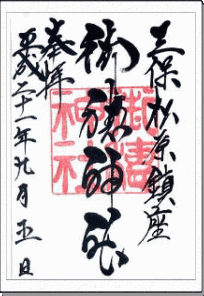 三保松原鎮座
御穂神社
奉拝
平成二十一年九月五日
御穗
神社